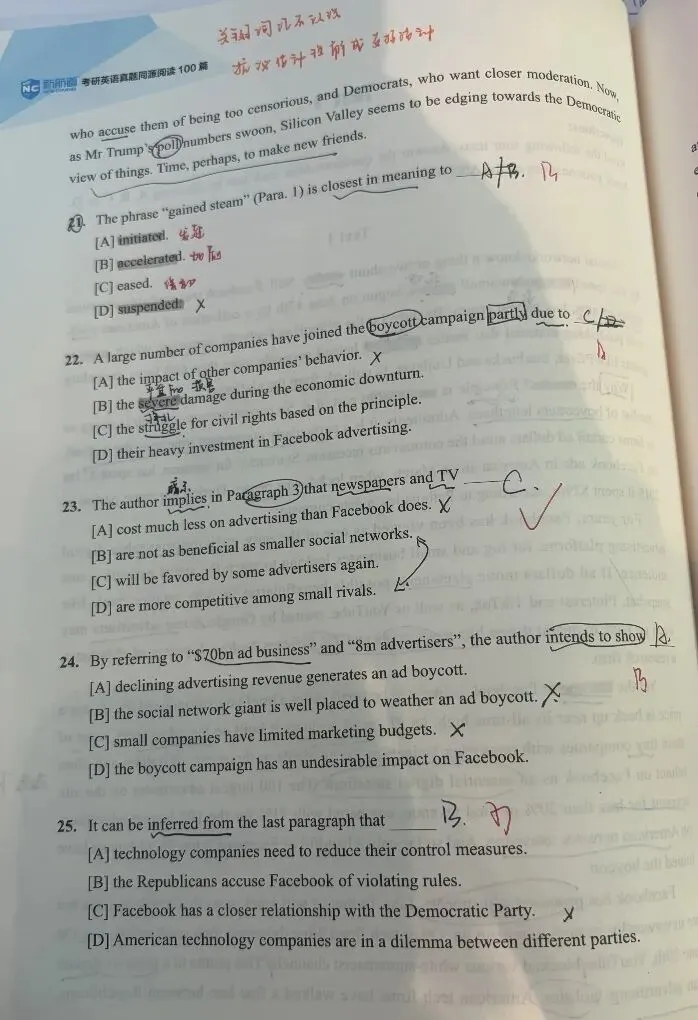 关键词
NC 新航道 考研英语真题同源阅读 100 篇
who accuse them of being too censorious, and Democrats, who want closer moderation. Now,
as Mr Trump's poll numbers swoon, Silicon Valley seems to be edging towards the Democratic
view of things. Time, perhaps, to make new friends.
21. The phrase “gained steam” (Para. 1) is closest in meaning to A B. B
[A] initiated. 发起
[B] accelerated. 加剧
[C] eased. 缓和
[D] suspended. X
22. A large number of companies have joined the boycott campaign partly due to C
[A] the impact of other companies’ behavior. X
D
严重的 损害
[B] the severe damage during the economic downturn.
[C] the struggle for civil rights based on the principle.
[D] their heavy investment in Facebook advertising.
23. The author implies in Paragraph 3 that newspapers and TV C.
[A] cost much less on advertising than Facebook does. X
[B] are not as beneficial as smaller social networks.
[C] will be favored by some advertisers again.
[D] are more competitive among small rivals.
24. By referring to “$70bn ad business” and “8m advertisers”, the author intends to show A.
[A] declining advertising revenue generates an ad boycott.
B
[B] the social network giant is well placed to weather an ad boycott. X
[C] small companies have limited marketing budgets. X
[D] the boycott campaign has an undesirable impact on Facebook.
25. It can be inferred from the last paragraph that B. D
[A] technology companies need to reduce their control measures.
[B] the Republicans accuse Facebook of violating rules.
[C] Facebook has a closer relationship with the Democratic Party. X
[D] American technology companies are in a dilemma between different parties.